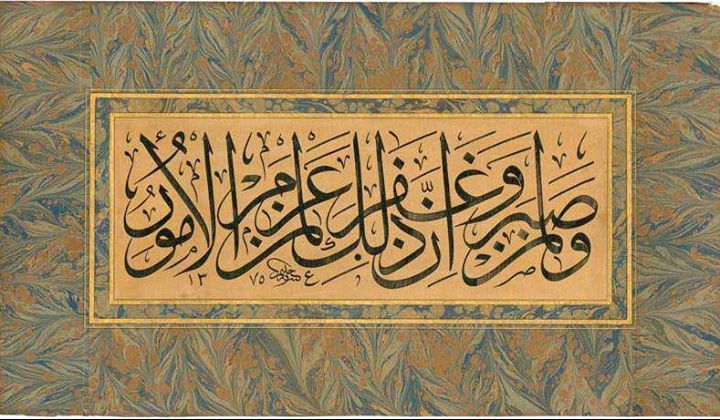 وَلَمَنْ صَبَرَ وَغَفَرَ اِنَّ ذٰلِكَ لَمِنْ عَزْمِ الْاُمُورِ
حليم ١٣٧٥